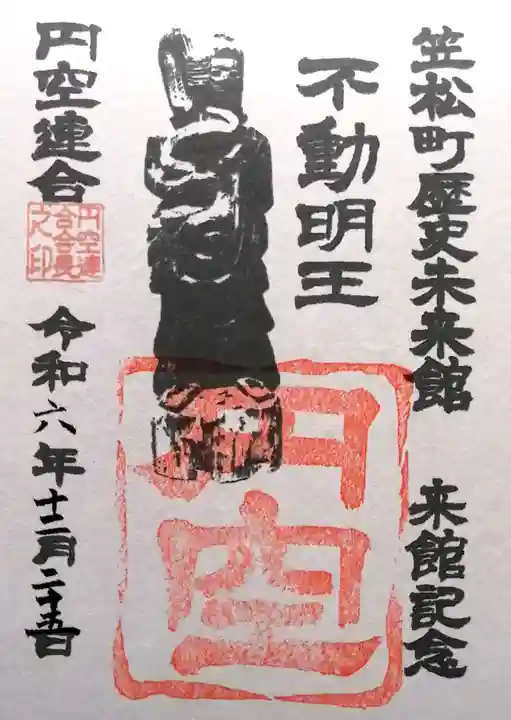 笠松町歴史未来館 来館記念
不動明王
円空
円空連合
円空連合会長之印
令和六年十二月二十五日